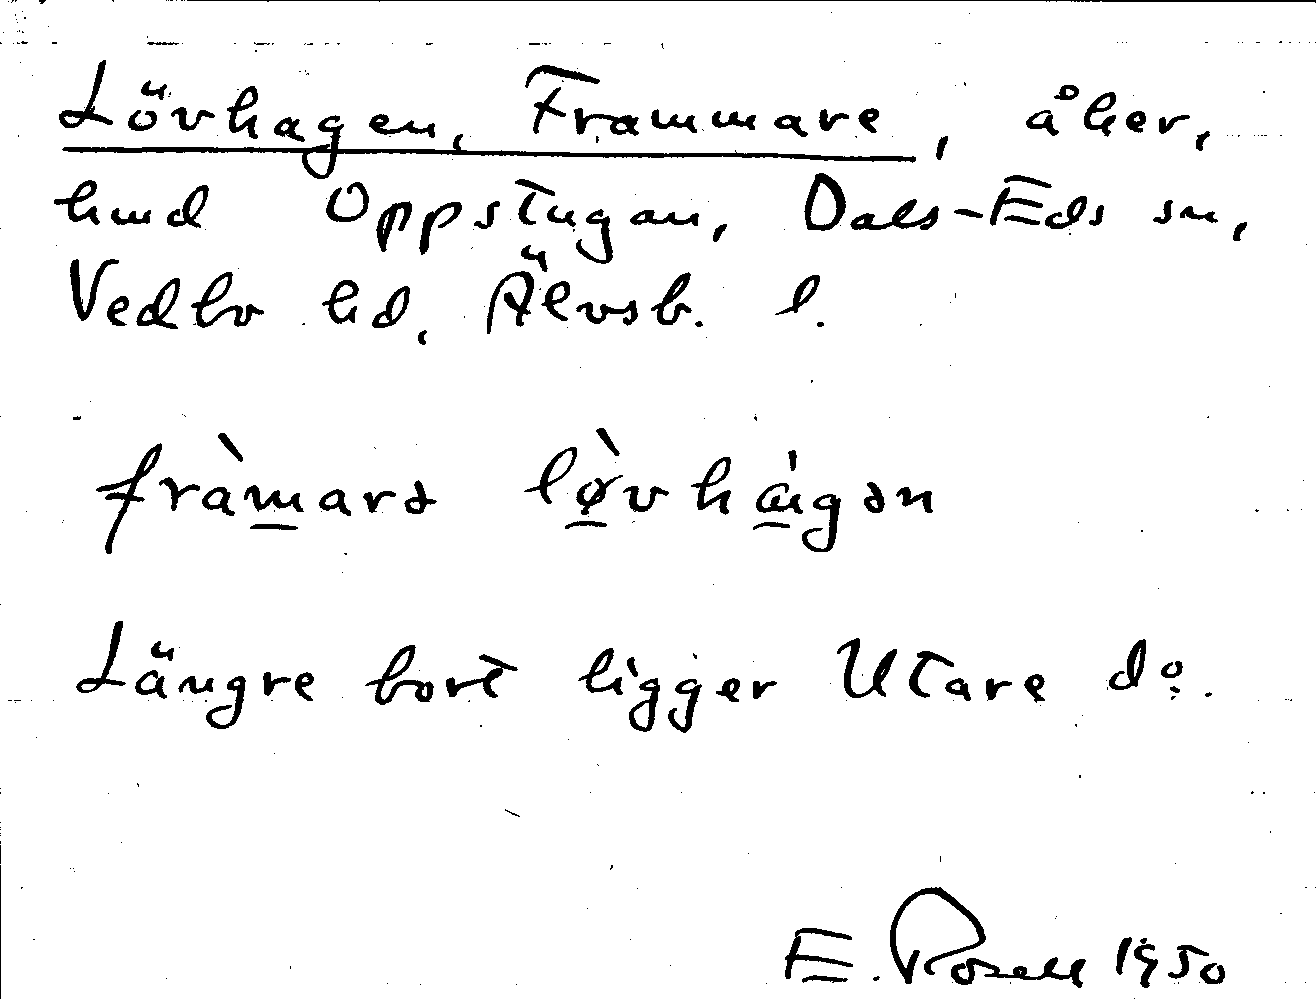 Lövhagen, Frammare, åker,
hmd Oppstugan, Dals-Eds sn,
Vedbo hd, Älvsb. l.
fràmarə lø̀vhágən
Längre bort ligger Utare do.
E. Rosell 1950